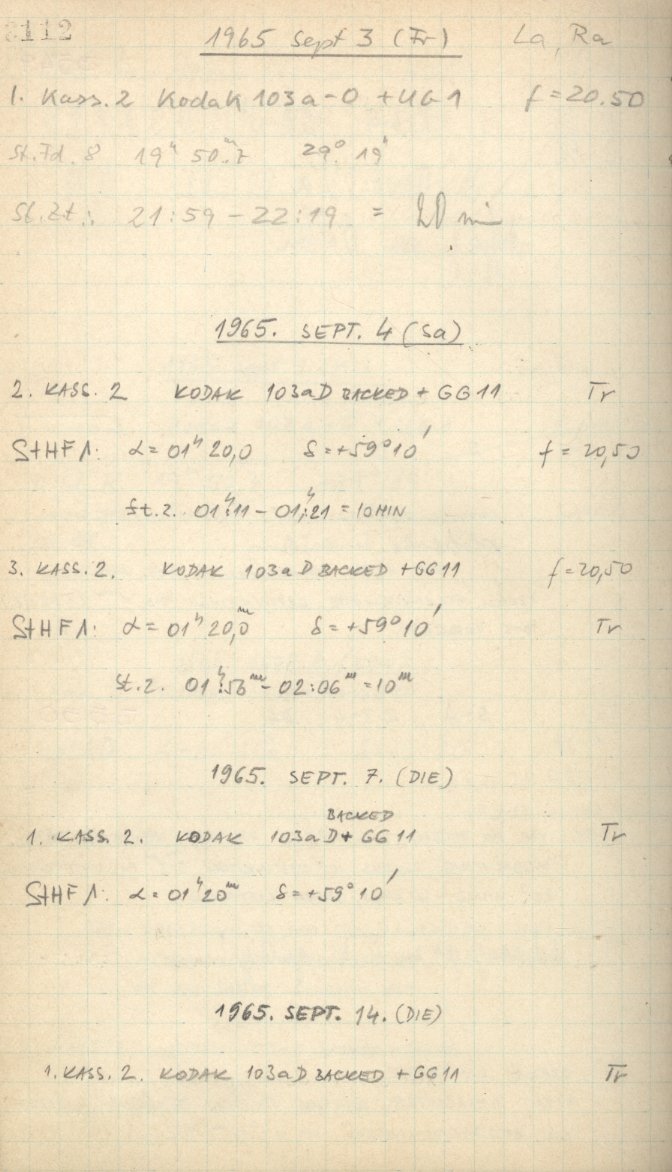 3112
1965 Sept 3 (Fr) La, Ra
1. Kass. 2 Kodak 103a-O + UG1 f = 20.50
St. Fd. 8 19ʰ 50.ᵐ7 29° 19'
St. Zt.: 21:59 - 22:19 = 20 min
1965. SEPT. 4 (Sa)
2. KASS. 2 KODAK 103aD BACKED + GG11 Tr
StHF1: α = 01ʰ 20,0 δ = +59° 10' f = 20,50
St. z. 01ʰ:11 - 01ʰ:21 = 10 MIN
3. KASS. 2. KODAK 103aD BACKED + GG11 f = 20,50
StHF1: α = 01ʰ 20,0ᵐ δ = +59° 10' Tr
St. z. 01ʰ:56ᵐ - 02:06ᵐ = 10ᵐ
1965. SEPT. 7. (DIE)
BACKED
1. KASS. 2. KODAK 103aD + GG11 Tr
StHF1: α = 01ʰ 20ᵐ δ = +59° 10'
1965. SEPT. 14. (DIE)
1. KASS. 2. KODAK 103aD BACKED + GG11 Tr